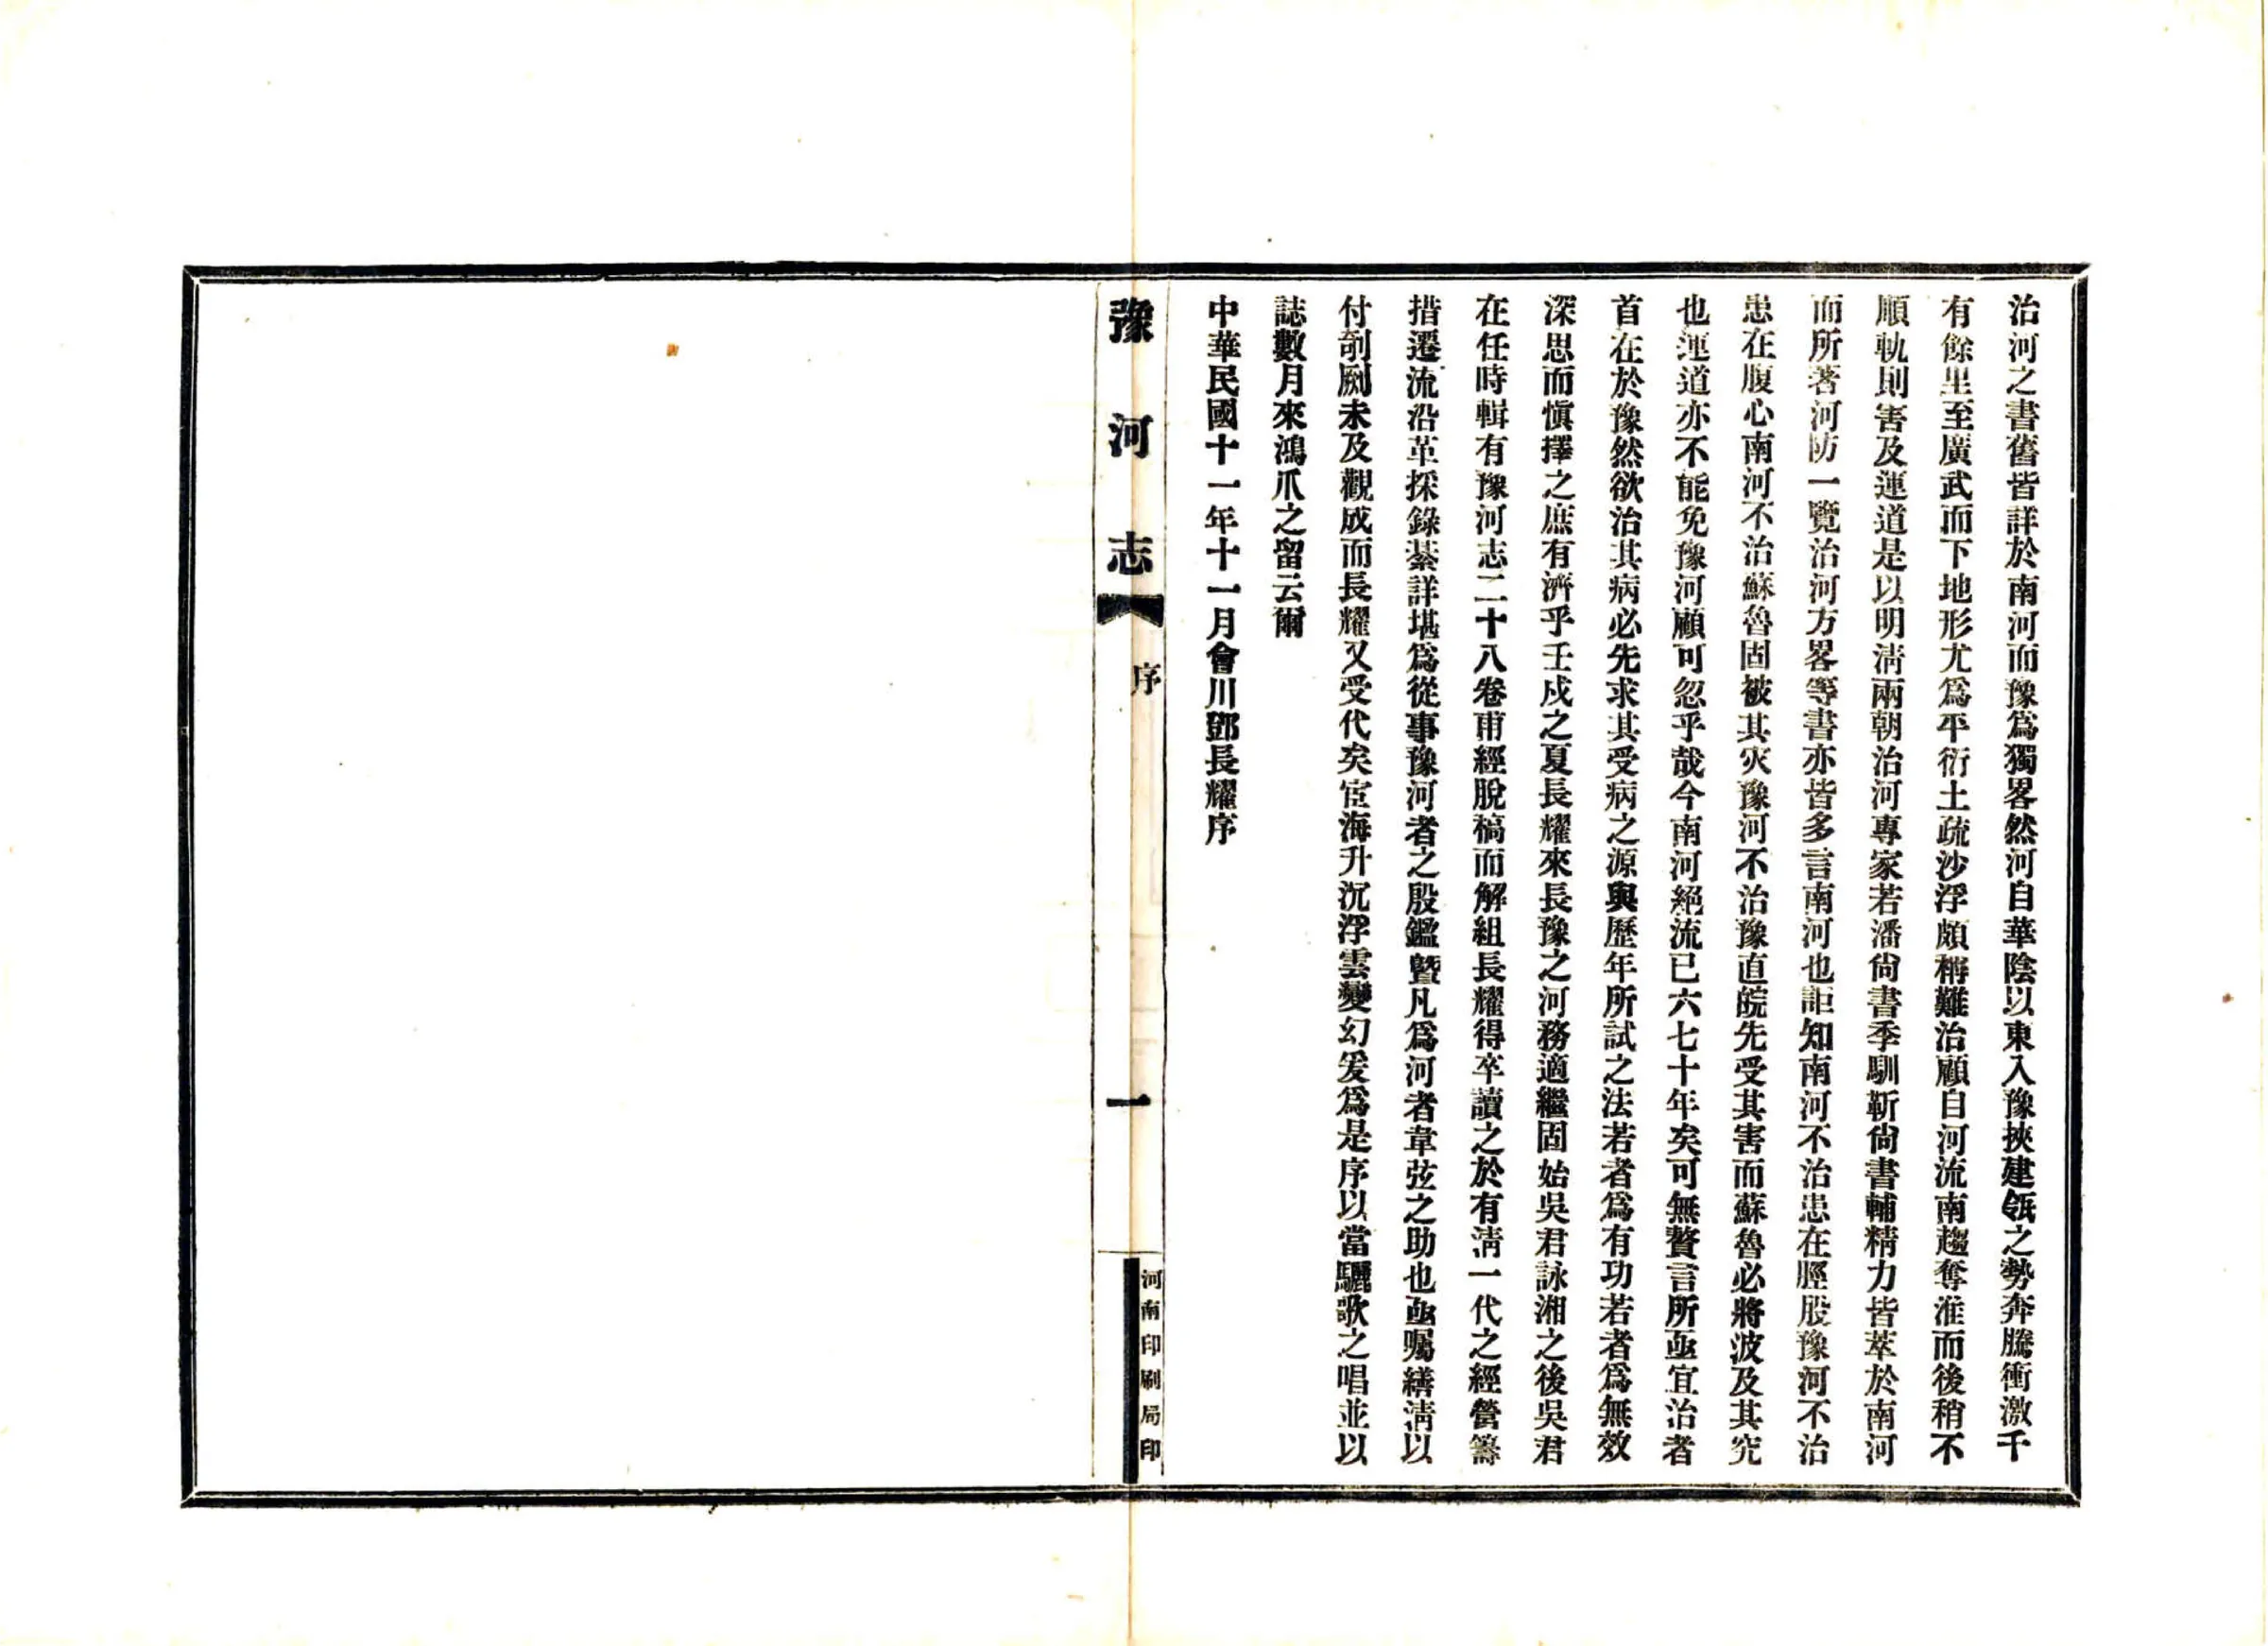 治河之書舊皆詳於南河而豫爲獨畧然河自華陰以東入豫挾建瓴之勢奔騰衝激千
有餘里至廣武而下地形尤爲平衍土疏沙浮頗稱難治顧自河流南趨奪淮而後稍不
順軌則害及運道是以明淸兩朝治河專家若潘尙書季馴靳尙書輔精力皆萃於南河
而所著河防一覽治河方畧等書亦皆多言南河也詎知南河不治患在脛股豫河不治
患在腹心南河不治蘇魯固被其灾豫河不治豫直皖先受其害而蘇魯必將波及其究
也運道亦不能免豫河顧可忽乎哉今南河絕流已六七十年矣可無贅言所亟宜治者
首在於豫然欲治其病必先求其受病之源與歷年所試之法若者爲有功若者爲無效
深思而愼擇之庶有濟乎壬戌之夏長耀來長豫之河務適繼固始吳君詠湘之後吳君
在任時輯有豫河志二十八卷甫經脫稿而解組長耀得卒讀之於有淸一代之經營籌
措遷流沿革採錄綦詳堪爲從事豫河者之殷鑑曁凡爲河者韋弦之助也亟囑繕淸以
付剞劂未及觀成而長耀又受代矣宦海升沉浮雲變幻爰爲是序以當驪歌之唱並以
誌數月來鴻爪之留云爾
中華民國十一年十一月會川鄧長耀序
豫河志
序
一
河南印刷局印